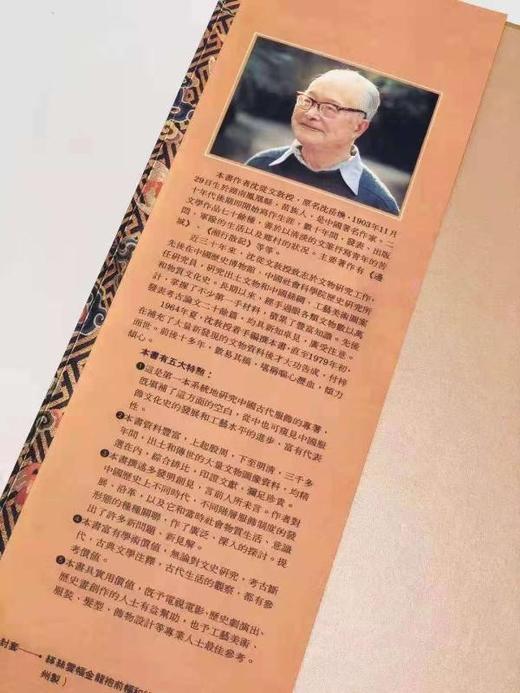 本書作者沈從文敎授，原名沈岳煥，1903年11月
29日生於湖南鳳凰縣，苗族人，是中國著名作家。二
十年代後期開始寫作生涯，數十年間，發表、出版
文學作品七十餘種，善於以清淡的文筆抒寫靑年的苦
悶，軍隊的生活以及鄉村的狀况。主要著作有《邊
城》、《湘行散記》等等。
近三十年來，沈從文敎授致志於文物研究工作，
先後在中國歷史博物館、中國社會科學院歷史研究所
任研究員，硏究出土文物和中國絲綢，工藝美術圖案
和物質文化史。長期以來，經手過眼各類文物數以萬
計，掌握了不少第一手材料，積累了豐富知識。先後
發表考古論文二十餘篇，均具新知卓見，廣受注意。
1964年夏，沈敎授着手編撰本書，直至1979年初，
在補充了大量新發現的文物資料後才大功告成，付梓
面世。前後十多年，數易其稿，堪稱嘔心瀝血，傾力
傾心。
本書有五大特點：
❶這是第一本系統地硏究中國古代服飾的專著，
旣塡補了這方面的空白，從中也可窺見中國服
飾文化史的發展和工藝水平的進步，富有代表
性。
❷本書資料豐富，上起殷周，下至明淸，三千多
年間，出土和傳世的大量文物圖像資料，均精
選在內，綜合排比，印證文獻，彌足珍貴。
❸本書撰述多發明創見，言前人所未言。作者對
中國歷史上不同時代、不同階層服飾制度的發
展、沿革，以及它和當時社會物質生活、意識
形態的種種關聯，作了廣泛、深入的探討，提
出了許多新問題、新見解。
❹本書富有學術價值，無論對文史硏究，考古斷
代，古典文學注釋，古代生活的觀察，都有參
考價值。
❺本書具實用價值，旣予電視電影、歷史劇演出、
歷史畫創作的人士有益幫助，也予工藝美術、
服裝、髮型、飾物設計等專業人士最佳參考。
封套——緙絲雲幅金龍袍前幅和
州製）